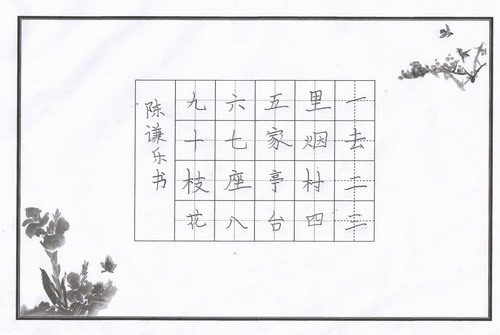 一去二三
里烟村四
五家亭台
六七座八
九十枝花
陈谦乐书